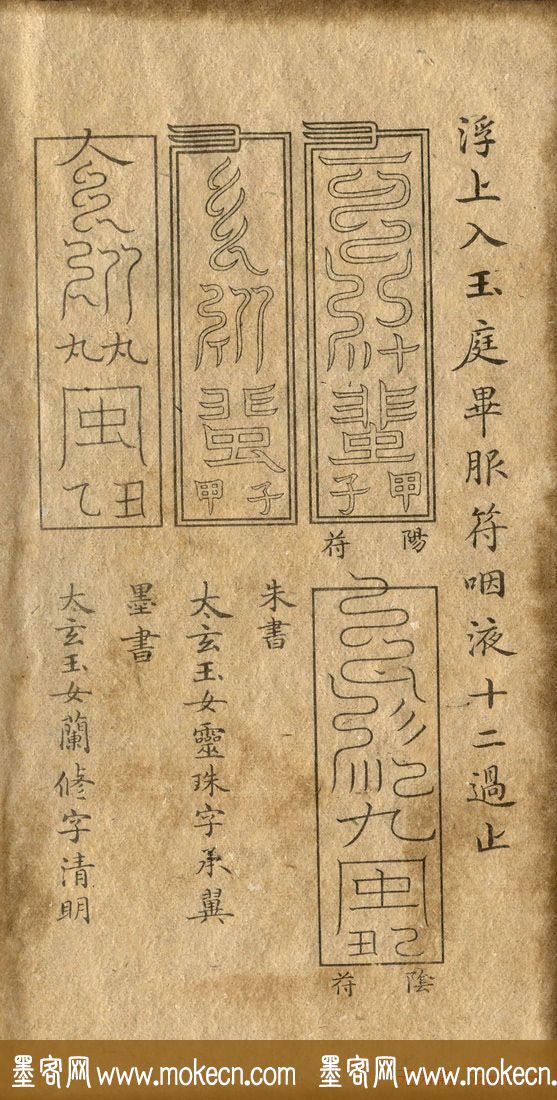 浮上入玉庭畢服符咽液十二過止
甲子
陽符
九
己丑
陰符
子甲
朱書
太玄玉女靈珠字承翼
丸丸
丑乙
墨書
太玄玉女蘭修字清明
墨客网 www.mokecn.com 墨客网 www.mokecn.com